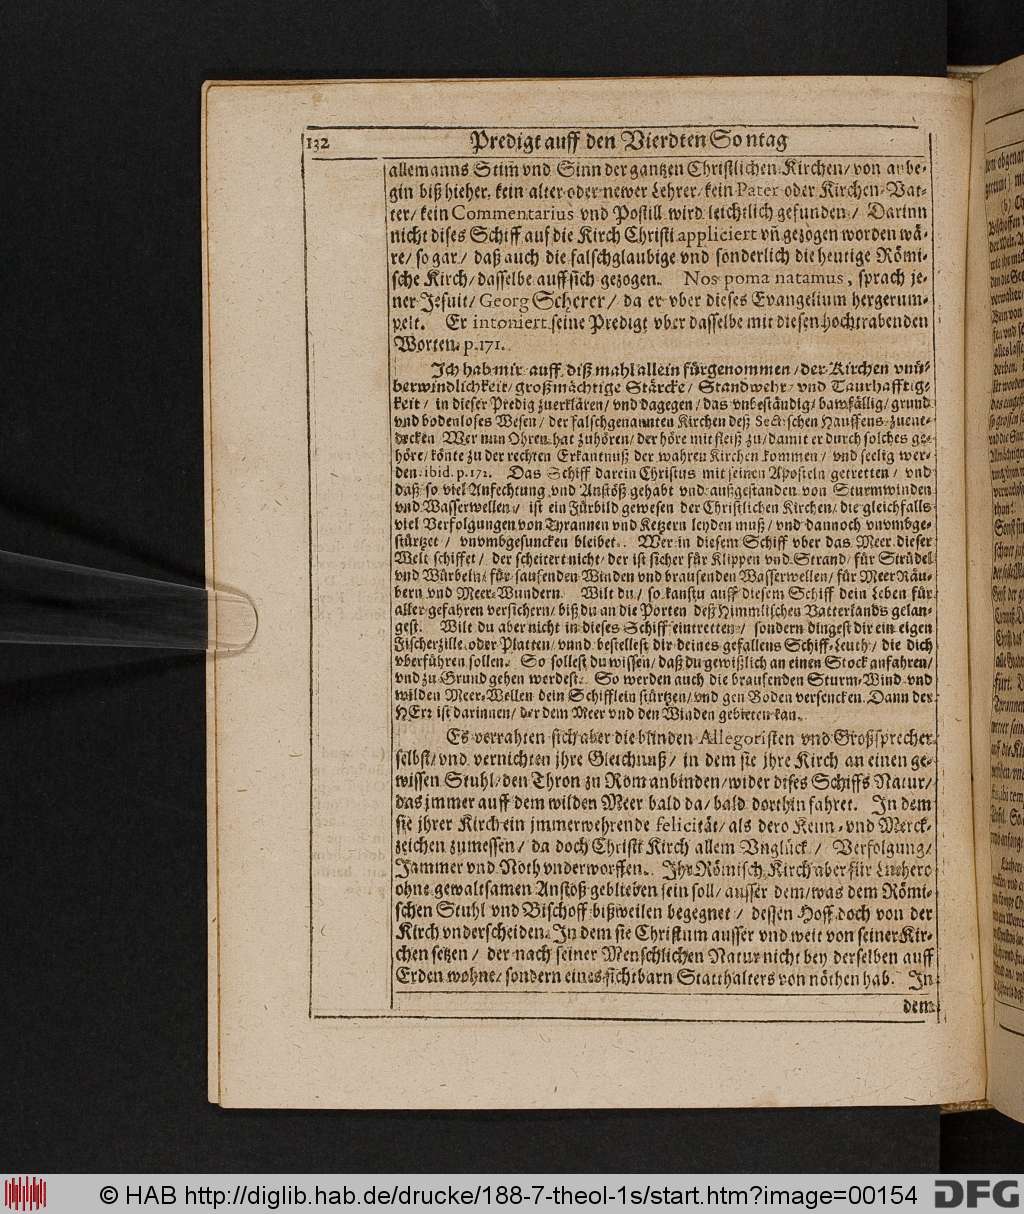 132 Predigt auff den Vierdten Sontag
allemanns Stim̃ vnd Sinn der gantzen Christlichen Kirchen/ von anbe-
gin biß hieher, kein alter oder newer Lehrer/ kein Pater oder Kirchen-Vat-
ter/ kein Commentarius vnd Postill wird leichtlich gefunden/ Darinn
nicht dises Schiff auf die Kirch Christi appliciert vñ gezogen worden wä-
re/ so gar/ daß auch die falschglaubige vnd sonderlich die heutige Römi-
sche Kirch/ dasselbe auff sich gezogen. Nos poma natamus, sprach je-
ner Jesuit/ Georg Scherer/ da er vber dieses Evangelium hergerum-
pelt. Er intoniert seine Predigt vber dasselbe mit diesen hochtrabenden
Worten. p. 171.
Ich hab mir auff diß mahl allein fürgenommen/ der Kirchen vnü-
berwindlichkeit/ großmächtige Stärcke/ Standwehr- vnd Taurhafftig-
keit/ in dieser Predig zuerklären/ vnd dagegen/ das vnbeständig/ bawfällig/ grund
vnd bodenloses Wesen/ der falschgenannten Kirchen deß Sectischen Hauffens zuent-
decken Wer nun Ohren hat zuhören/ der höre mit fleiß zu/ damit er durch solches ge-
höre/ könte zu der rechten Erkantnuß der wahren Kirchen kommen/ vnd seelig wer-
den. ibid. p. 172. Das Schiff darein Christus mit seinen Aposteln getretten/ vnd
daß so viel Anfechtung vnd Anstöß gehabt vnd außgestanden von Sturmwinden
vnd Wasserwellen/ ist ein Fürbild gewesen der Christlichen Kirchen/ die gleichfalls
viel Verfolgungen von Tyrannen vnd Ketzern leyden muß/ vnd dannoch vnvmbge-
stürtzet/ vnvmbgesuncken bleibet. Wer in diesem Schiff vber das Meer dieser
Welt schiffet/ der scheitert nicht/ der ist sicher für Klippen vnd Strand/ für Strüdel
vnd Würbeln/ für sausenden Winden vnd brausenden Wasserwellen/ für Meer Räu-
bern vnd Meer-Wundern. Wilt du/ so kanstu auff diesem Schiff dein Leben für
aller gefahren versichern/ biß du an die Porten deß Himmlischen Vatterlands gelan-
gest. Wilt du aber nicht in dieses Schiff eintretten/ sondern dingest dir ein eigen
Fischerzille oder Platten/ vnnd bestellest dir deines gefallens Schiff-Leuth/ die dich
vberführen sollen. So sollest du wissen/ daß du gewißlich an einen Stock anfahren/
vnd zu Grund gehen werdest. So werden auch die brausenden Sturm-Wind vnd
wilden Meer-Wellen dein Schifflein stürtzen/ vnd gen Boden versencken. Dann der
HErr ist darinnen/ der dem Meer vnd den Winden gebieten kan.
Es verrahten sich aber die blinden Allegoristen vnd Großsprecher
selbst/ vnd vernichten jhre Gleichnuß/ in dem sie jhre Kirch an einen ge-
wissen Stuhl/ den Thron zu Rom anbinden/ wider dises Schiffs Natur/
das jmmer auff dem wilden Meer bald da/ bald dorthin fahret. In dem
sie jhrer Kirch ein jmmerwehrende felicität/ als dero Kenn- vnd Merck-
zeichen zumessen/ da doch Christi Kirch allem Vnglück/ Verfolgung/
Jammer vnd Noth vnderworffen. Ihr Römisch Kirch aber für Luthero
ohne gewaltsamen Anstöß geblieben sein soll/ ausser dem/ was dem Römi-
schen Stuhl vnd Bischoff bißweilen begegnet/ dessen Hoff doch von der
Kirch vnderscheiden. In dem sie Christum ausser vnd weit von seiner Kir-
chen setzen/ der nach seiner Menschlichen Natur nicht bey derselben auff
Erden wohne/ sondern eines sichtbarn Statthalters von nöthen hab. In
dem
© HAB http://diglib.hab.de/drucke/188-7-theol-1s/start.htm?image=00154 DFG